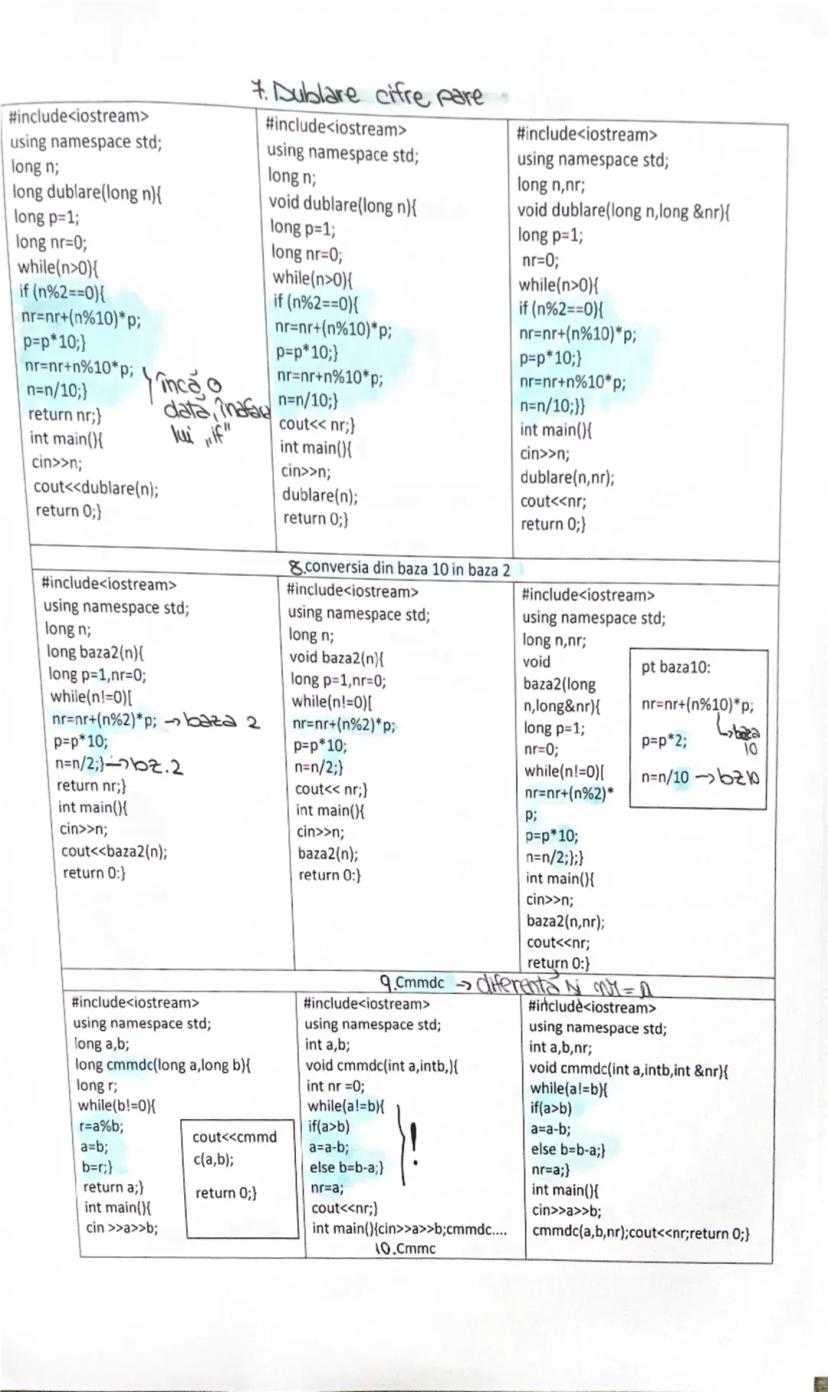 7. Dublare cifre pare
#include<iostream>
using namespace std;
long n;
long dublare(long n){
long p=1;
long nr=0;
while(n>0){
if (n%2==0){
nr=nr+(n%10)*p;
p=p*10;}
nr=nr+n%10*p;
n=n/10;}
return nr;}
int main(){
cin>>n;
cout<<dublare(n);
return 0;}
încă o
dată, înafara
lui „if"
#include<iostream>
using namespace std;
long n;
void dublare(long n){
long p=1;
long nr=0;
while(n>0){
if (n%2==0){
nr=nr+(n%10)*p;
p=p*10;}
nr=nr+n%10*p;
n=n/10;}
cout<< nr;}
int main(){
cin>>n;
dublare(n);
return 0;}
#include<iostream>
using namespace std;
long n,nr;
void dublare(long n,long &nr){
long p=1;
nr=0;
while(n>0){
if (n%2==0){
nr=nr+(n%10)*p;
p=p*10;}
nr=nr+n%10*p;
n=n/10;}}
int main(){
cin>>n;
dublare(n,nr);
cout<<nr;
return 0;}
8.conversia din baza 10 in baza 2
#include<iostream>
using namespace std;
long n;
long baza2(n){
long p=1,nr=0;
while(n!=0)[
nr=nr+(n%2)*p; → baza 2
p=p*10;
n=n/2;} → bz.2
return nr;}
int main(){
cin>>n;
cout<<baza2(n);
return 0:}
#include<iostream>
using namespace std;
long n;
void baza2(n){
long p=1,nr=0;
while(n!=0)[
nr=nr+(n%2)*p;
p=p*10;
n=n/2;}
cout<< nr;}
int main(){
cin>>n;
baza2(n);
return 0:}
#include<iostream>
using namespace std;
long n,nr;
void
baza2(long
n,long&nr){
long p=1;
nr=0;
while(n!=0)[
nr=nr+(n%2)*
p;
p=p*10;
n=n/2;};}
int main(){
cin>>n;
baza2(n,nr);
cout<<nr;
return 0:}
pt baza10:
nr=nr+(n%10)*p;
↳ baza
10
p=p*2;
n=n/10 → bz10
9.Cmmdc → diferenta
#include<iostream>
using namespace std;
long a,b;
long cmmdc(long a,long b){
long r;
while(b!=0){
r=a%b;
a=b;
b=r;}
return a;}
int main(){
cin >>a>>b;
cout<<cmmd
c(a,b);
return 0;}
#include<iostream>
using namespace std;
int a,b;
void cmmdc(int a,intb,){
int nr =0;
while(a!=b){
if(a>b)
a=a-b;
else b=b-a;}
nr=a;
cout<<nr;}
int main(){cin>>a>>b;cmmdc....
!
#include<iostream>
using namespace std;
int a,b,nr;
void cmmdc(int a,intb,int &nr){
while(a!=b){
if(a>b)
a=a-b;
else b=b-a;}
nr=a;}
int main(){
cin>>a>>b;
cmmdc(a,b,nr);cout<<nr;return 0;}
10.Cmmc